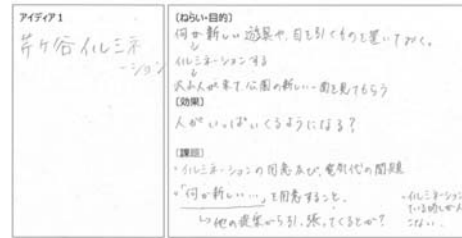 アイディア1
芹ヶ谷イルミネ
ーション
(ねらい・目的)
何か新しい遊具や、目を引くものを置いておく。
イルミネーションする
大ぜい人が来て、公園の新しい一面を見てもらう
(効果)
人がいっぱいくるようになる?
(課題)
・イルミネーションの用意及び、電気代の問題
・「何か新しい…」を用意すること。
↳他の提案から引っ張ってくるとか?
・イルミネーション
ている時しか人
こない.